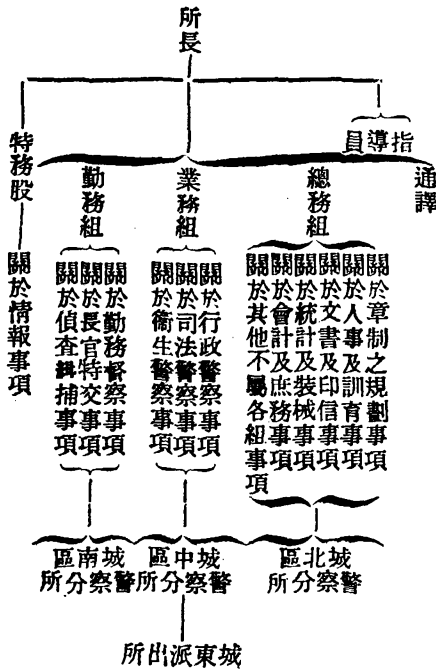 所長
指導員
通譯
總務組
關於章制之規劃事項
關於人事及訓育事項
關於文書及印信事項
關於統計及裝械事項
關於會計及庶務事項
關於其他不屬各組事項
業務組
關於行政警察事項
關於司法警察事項
關於衞生警察事項
勤務組
關於勤務督察事項
關於長官特交事項
關於偵查緝捕事項
特務股
關於情報事項
城北區
警察分所
城中區
警察分所
城南區
警察分所
城東派出所